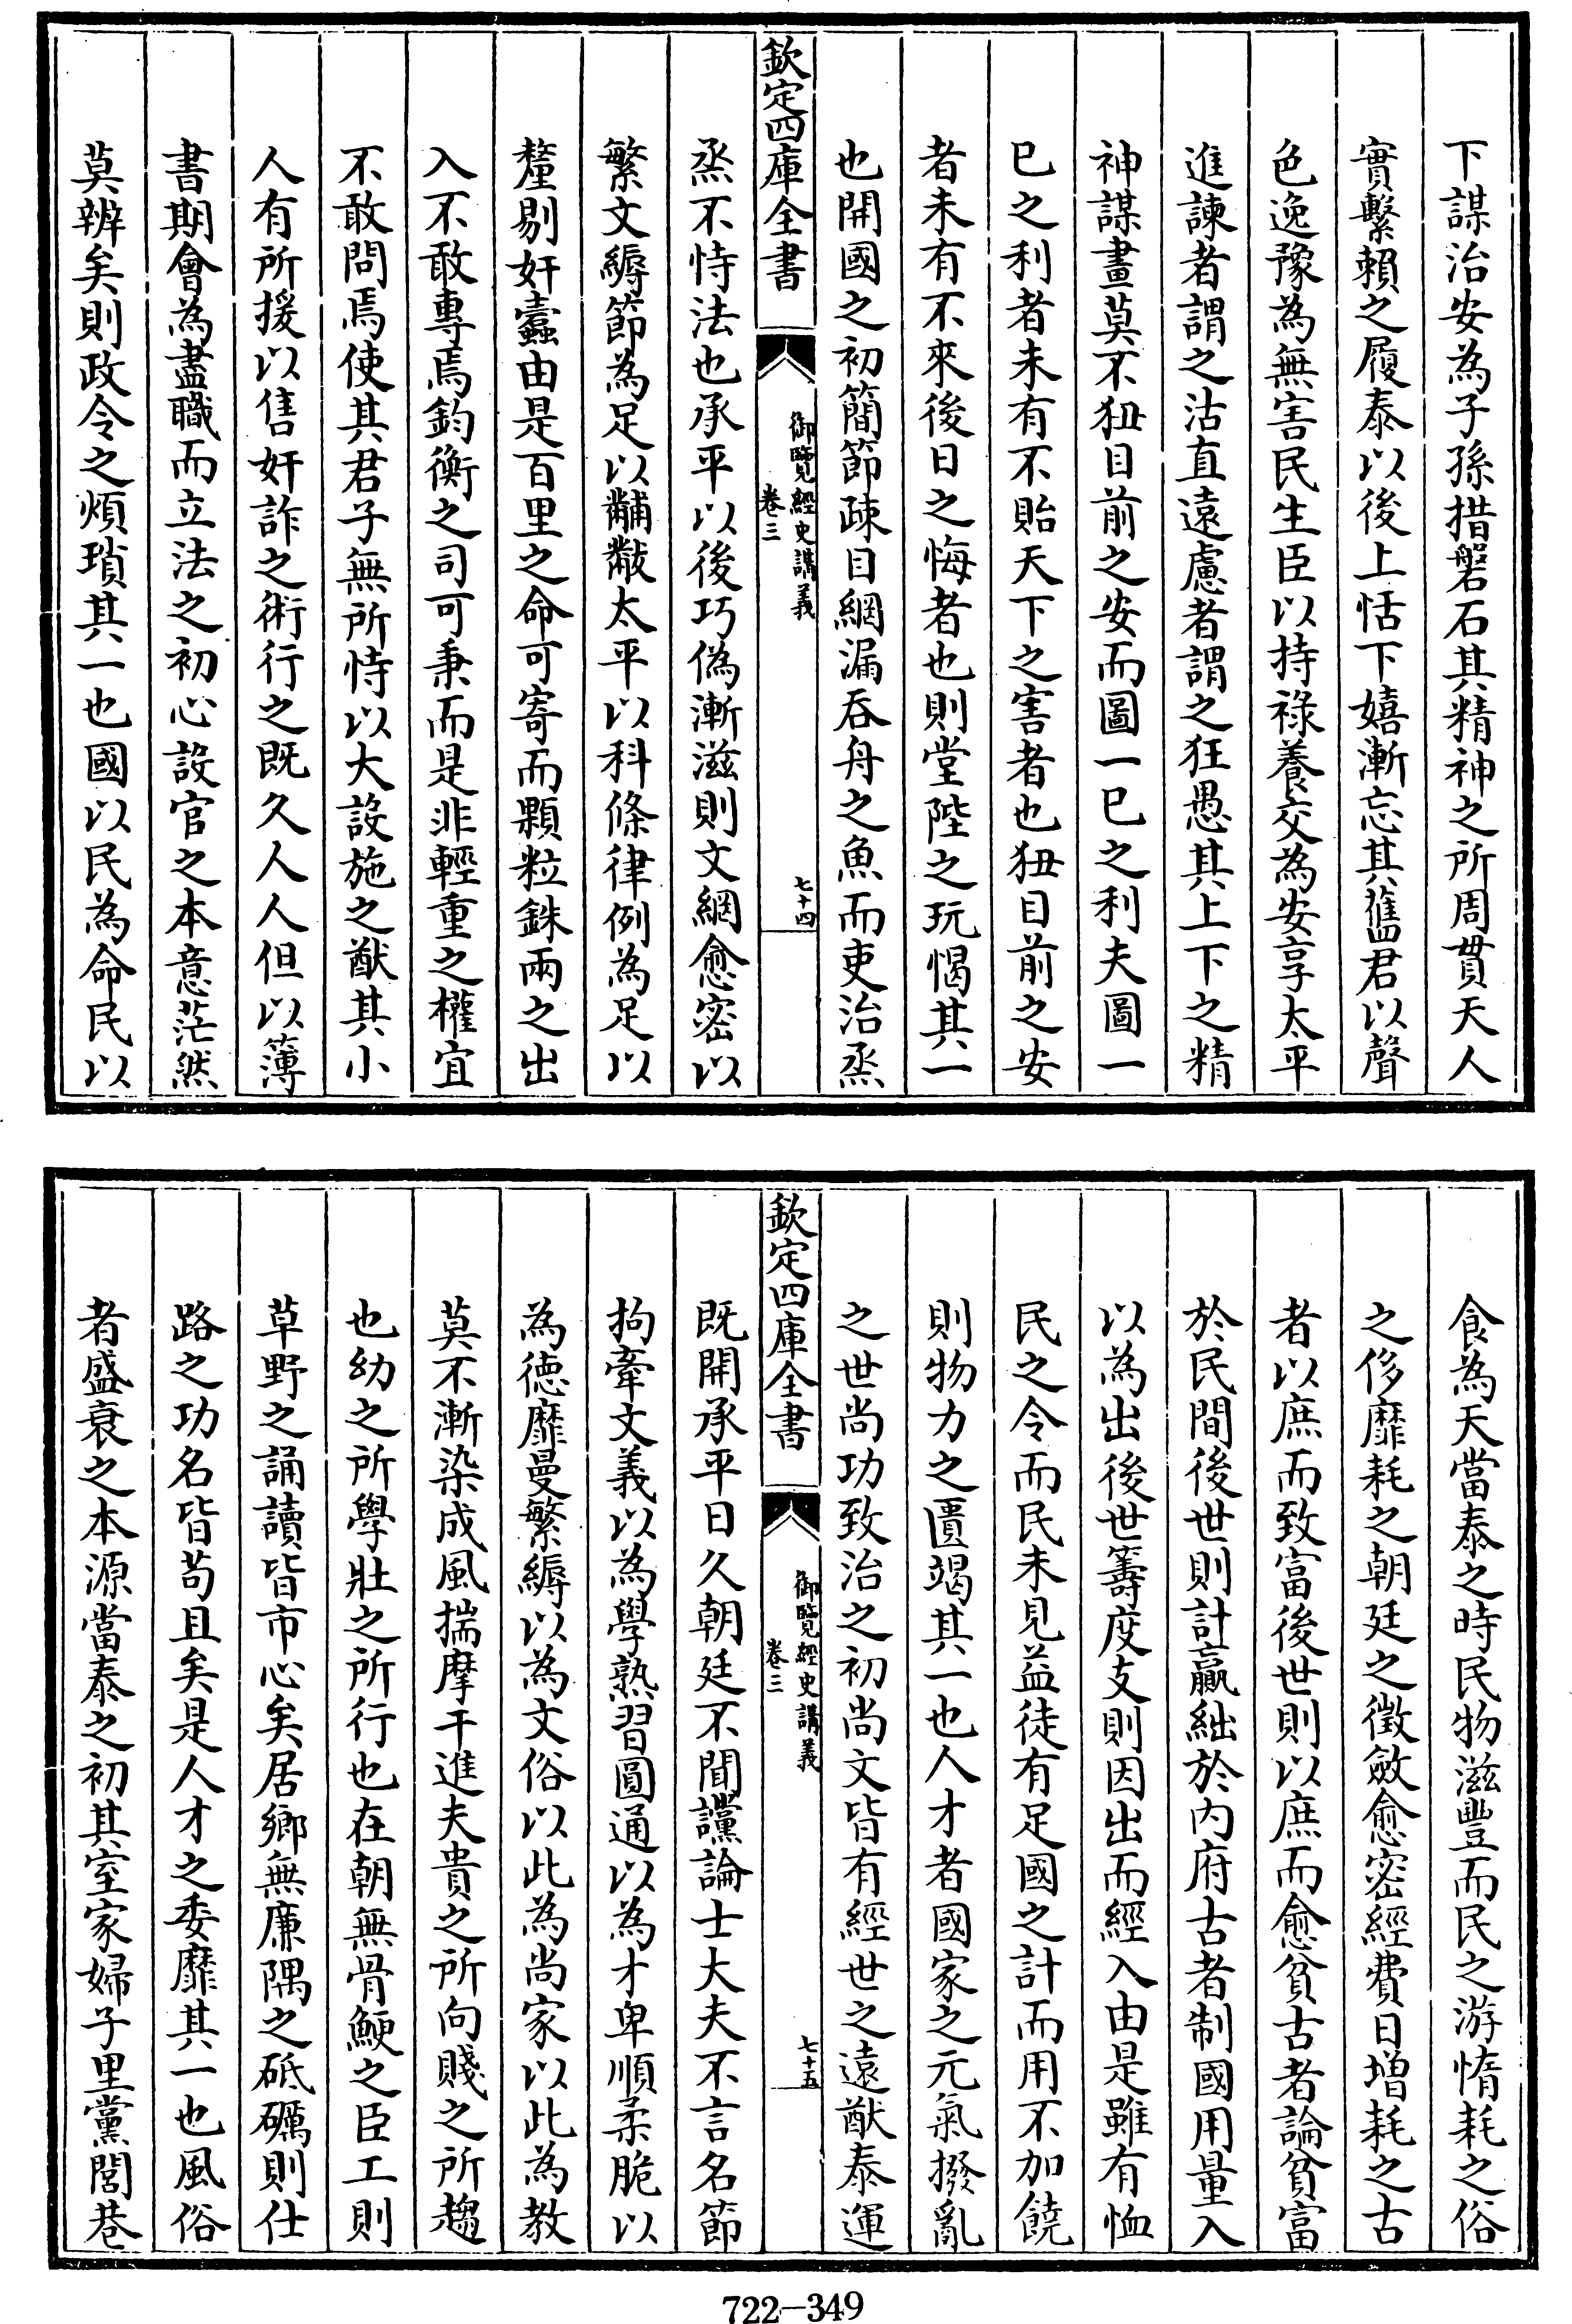 下謀治安為子孫措磐石其精神之所周貫天人
實繫賴之履泰以後上恬下嬉漸忘其舊君以聲
色逸豫為無害民生臣以持祿養交為安享太平
進諫者謂之沽直遠慮者謂之狂愚其上下之精
神謀畫莫不狃目前之安而圖一已之利夫圖一
已之利者未有不貽天下之害者也狃目前之安
者未有不來後日之悔者也則堂陛之玩愒其一
也開國之初簡節疎目網漏吞舟之魚而吏治烝
欽定四庫全書
御覽經史講義
卷三
七十四
烝不恃法也承平以後巧偽漸滋則文網愈密以
繁文縟節為足以黼黻太平以科條律例為足以
釐剔奸蠹由是百里之命可寄而顆粒銖兩之出
入不敢專焉鈞衡之司可秉而是非輕重之權宜
不敢問焉使其君子無所恃以大設施之猷其小
人有所援以售奸詐之術行之既久人人但以簿
書期會為盡職而立法之初心設官之本意茫然
莫辨矣則政令之煩瑣其一也國以民為命民以
食為天當泰之時民物滋豐而民之游惰耗之俗
之侈靡耗之朝廷之徵斂愈密經費日增耗之古
者以庶而致富後世則以庶而愈貧古者論貧富
於民間後世則計贏絀於內府古者制國用量入
以為出後世籌度支則因出而經入由是雖有恤
民之令而民未見益徒有足國之計而用不加饒
則物力之匱竭其一也人才者國家之元氣撥亂
之世尚功致治之初尚文皆有經世之遠猷泰運
欽定四庫全書
御覽經史講義
卷三
七十五
既開承平日久朝廷不聞讜論士大夫不言名節
拘牽文義以為學熟習圓通以為才卑順柔脆以
為德靡曼繁縟以為文俗以此為尚家以此為教
莫不漸染成風揣摩干進夫貴之所向賤之所趨
也幼之所學壯之所行也在朝無骨鯁之臣工則
草野之誦讀皆市心矣居鄉無廉隅之砥礪則仕
路之功名皆苟且矣是人才之委靡其一也風俗
者盛衰之本源當泰之初其室家婦子里黨閭巷
722-349